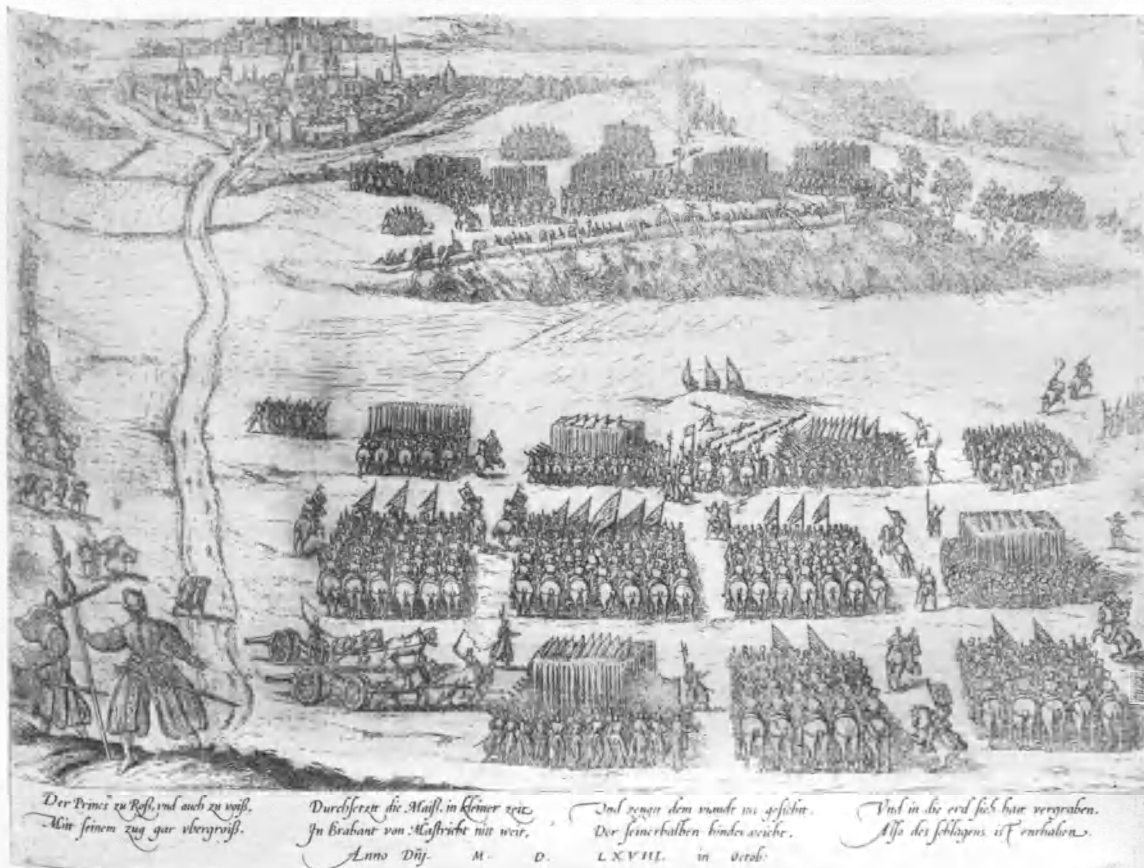 Der Princ zu Roß, vnd auch zu
Mitt seinem zug gar vbergroiß.
Durchsetzt die Maiß, in kleiner zeit
In Brabant von Mastricht nit weit,
Vnd dem viandt ins gesicht.
Der seinerhalben hinder weicht.
Vnd in die erd sich hatt vergraben.
Also des schlagens ist enthalten.
Anno Dñj. M. D. LXVIII. in Octob: